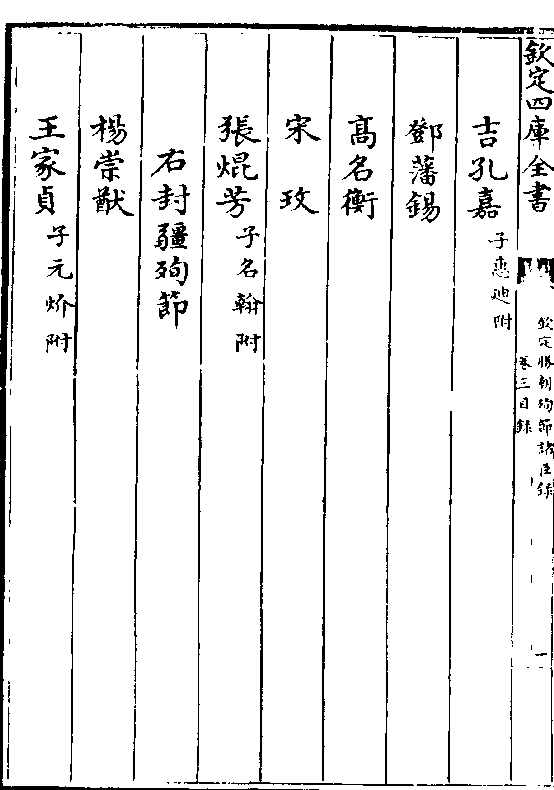 欽定四庫全書
欽定勝朝殉節諸臣錄
卷三目錄
一
吉孔嘉 子惠迪附
鄧藩錫
髙名衡
宋玫
張焜芳 子名翰附
右封疆殉節
楊崇猷
王家貞 子元炌附